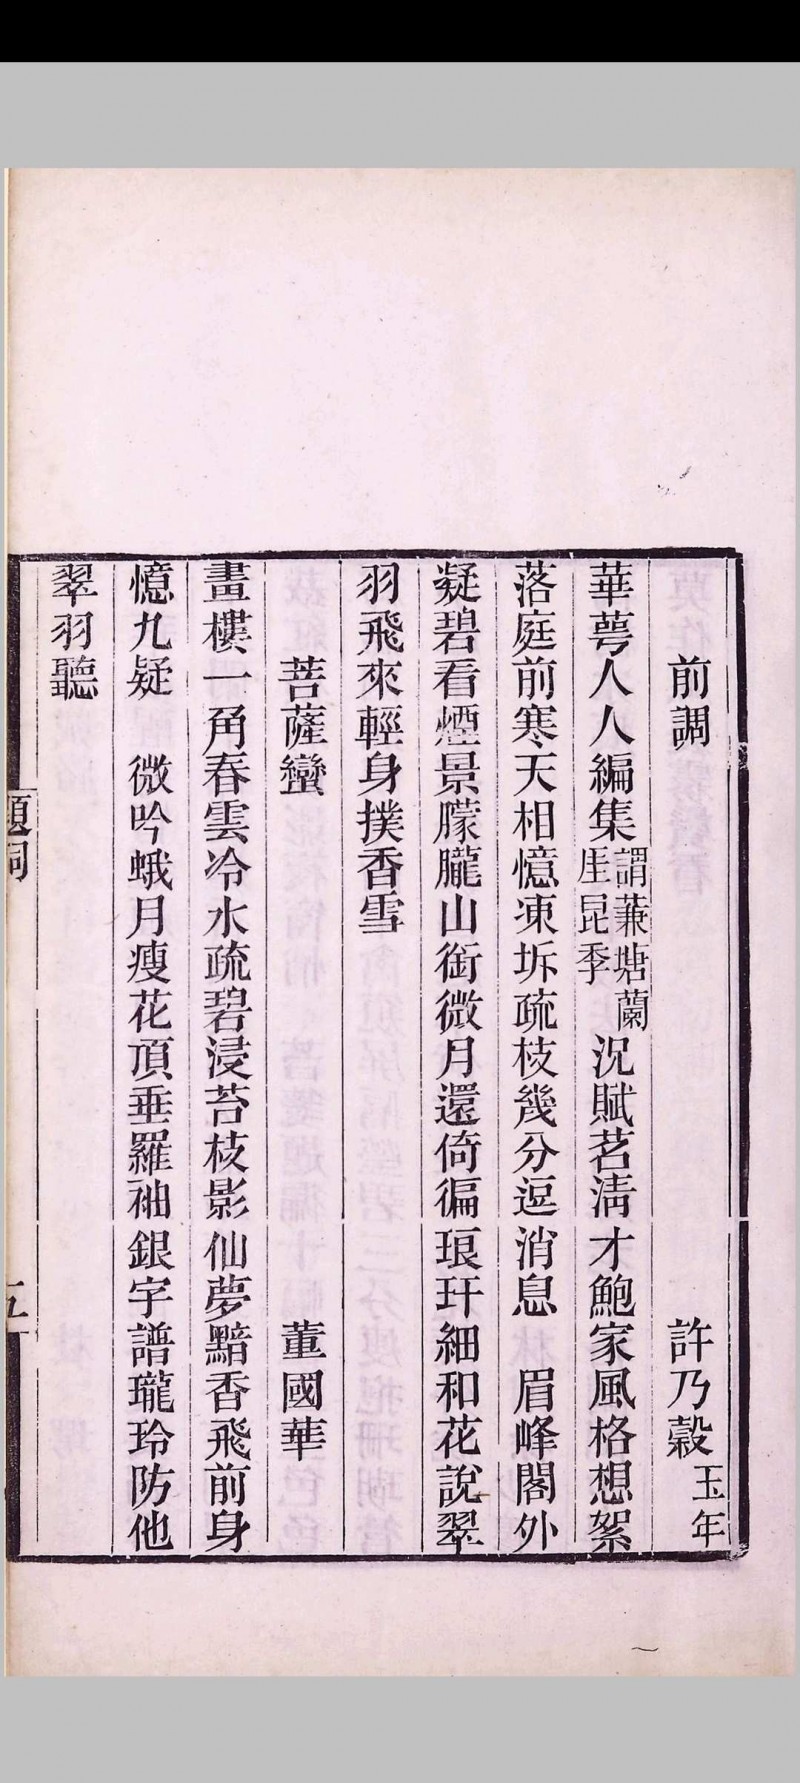 前調　許乃穀玉年
華萼人人編集謂蒹塘蘭厓昆季況賦茗清才鮑家風格想絮
落庭前寒天相憶凍坼疏枝幾分逗消息　眉峰閣外
凝碧看煙景朦朧山銜微月還倚徧琅玕細和花說翠
羽飛來輕身撲香雪
菩薩蠻　董國華
畫樓一角春雲冷水疏碧浸苔枝影仙夢黯香飛前身
憶九疑　微吟蛾月瘦花頂垂羅袖銀字譜瓏玲防他
翠羽聽
題詞　五